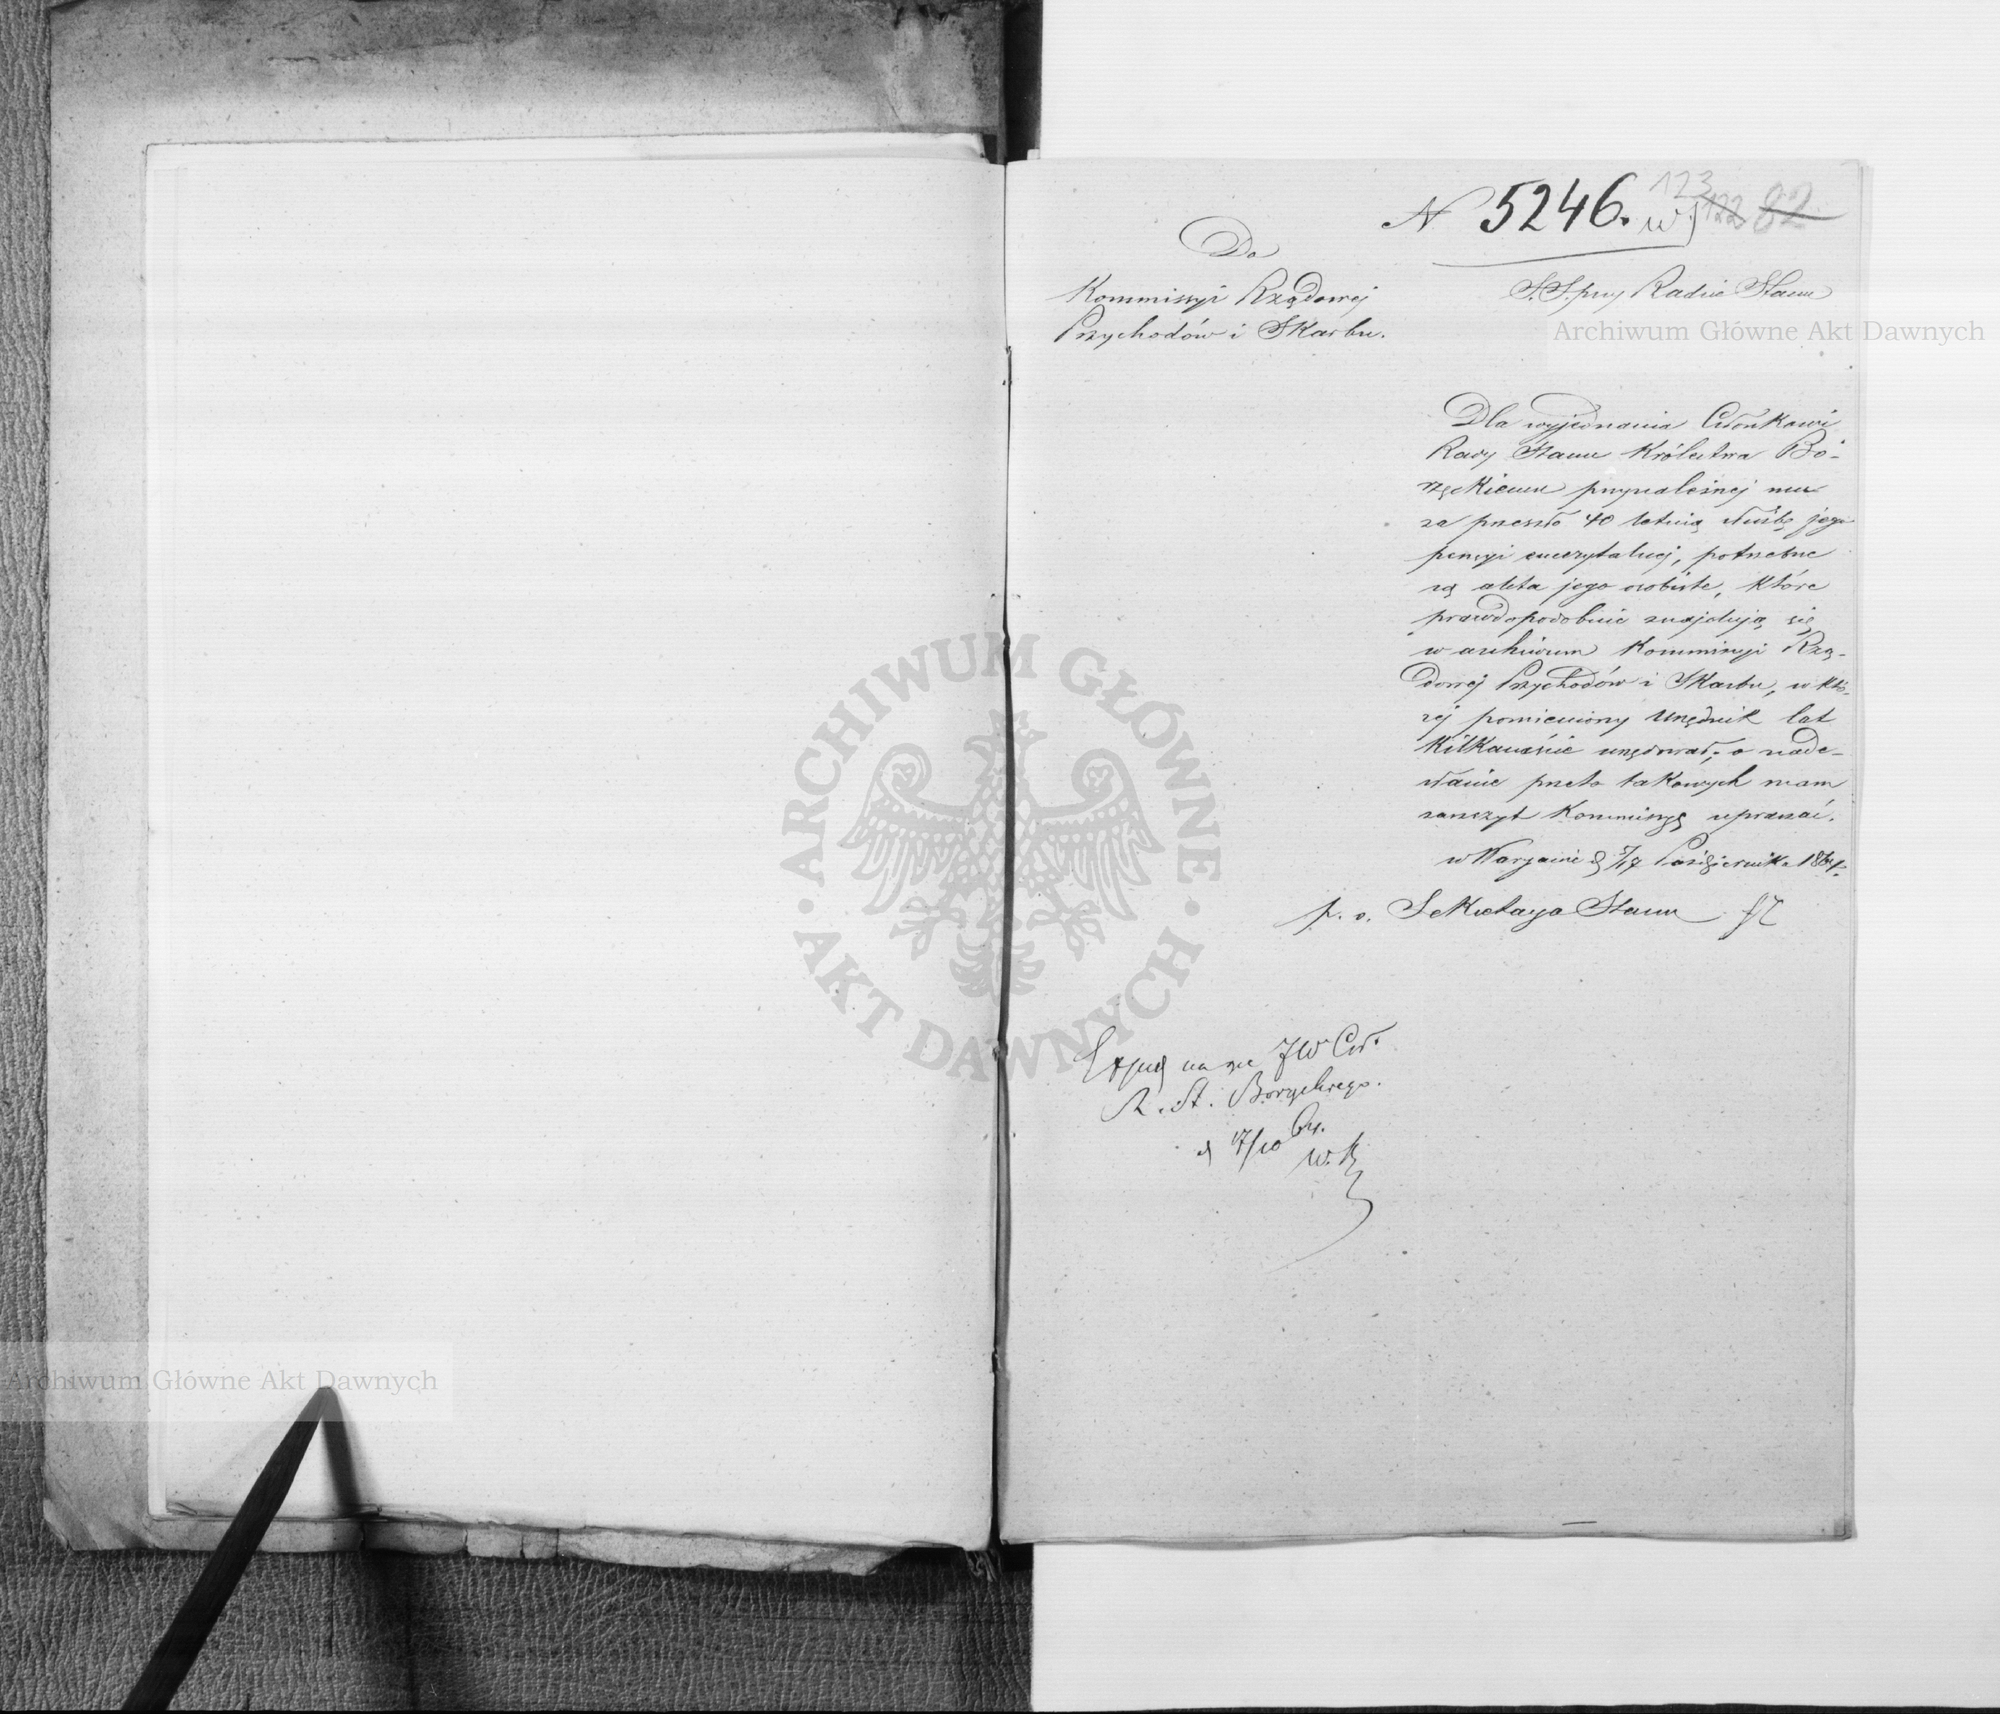 N 5246. 123
122 82
Do
Kommissyi Rządowej
Przychodów i Skarbu.
S. S. przy Radzie Stanu
Archiwum Główne Akt Dawnych
Dla wyjednania Członkowi
Rady Stanu Królestwa Bo-
rzęckiemu przynależnej mu
za przeszło 40 letnią służbę jego
pensyi emerytalnej, potrzebne
są akta jego osobiste, które
prawdopodobnie znajdują się
w archiwum Kommissyi Rzą-
dowej Przychodów i Skarbu, w któ-
rej pomieniony urzędnik lat
kilkanaście urzędował; o nade-
słanie przeto takowych mam
zaszczyt Kommissyę upraszać.
w Warszawie d 5/17 Października 1864 r.
p. o. Sekretarza Stanu
na ręce JW Czł.
R. St. Borzęckiego.
d 17/10
W. R
ARCHIWUM GŁÓWNE
AKT DAWNYCH
Archiwum Główne Akt Dawnych